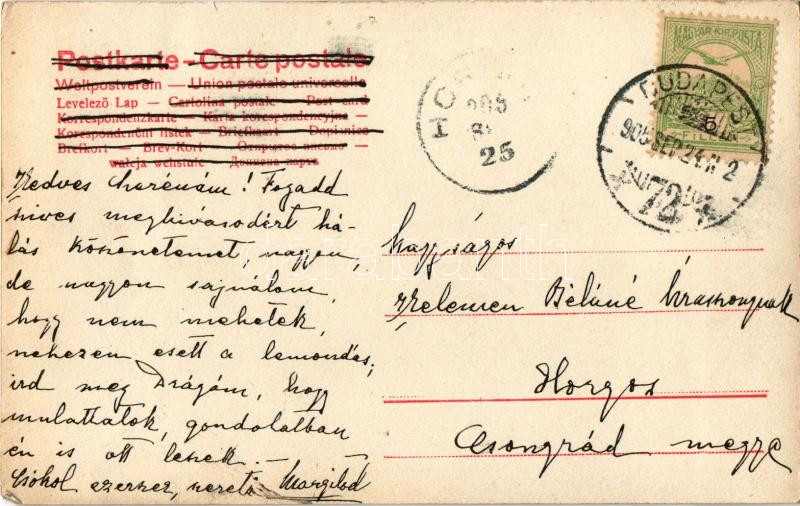 Postkarte - Carte postale
Weltpostverein - Union postale universelle
Levelező Lap - Cartolina postale - Post card
Korrespondenzkarte - Karta korespondencyjna
Korespondenční lístek - Briefkaart - Dopisnice
Brefkort - Brev-Kort - Открытое письмо
MAGYAR KIR. POSTA
BUDAPEST
905 SEP 24 N 2
72
HO
905
25
Kedves Cherénám! Fogadd
szives meghivásodért há-
lás köszönetemet, nagyon,
de nagyon sajnálom,
hogy nem mehetek,
nehezen esett a lemondás;
ird meg Drágám, hogy
mulattatok, gondolatban
én is ott leszek. —
Csókol ezerszer, szerető Margitod
Nagyságos
Kelemen Béláné Úrasszonynak
Horgos
Csongrád megye